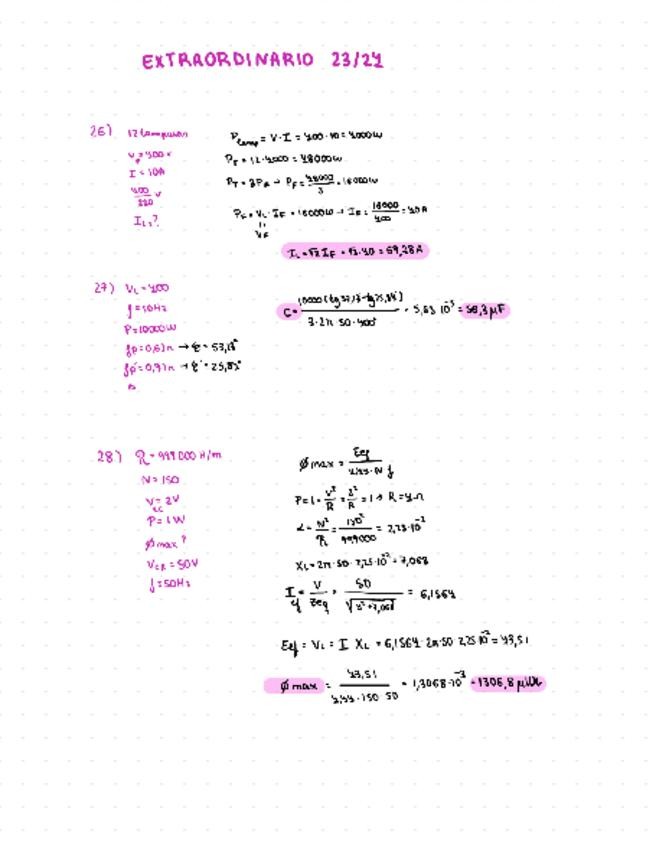 EXTRAORDINARIO 23/24
26) 12 lámparas
V = 400 V
I = 10A
400/220 V
IL?
Plamp = V·I = 400·10 = 4000W
PT = 12·4000 = 48000W
PT = 3PF → PF = 48000/3 = 16000W
PF = VL·IF = 16000W → IF = 16000/400 = 40A
VF
IL = √3 IF = √3·40 = 69,28A
27) VL = 400
f = 50Hz
P = 10000W
fp = 0,6in → φ = 53,13°
fp' = 0,9in → φ' = 25,84°
C = / 3·2π·50·400² = 5,83·10⁻⁵ = 58,3 μF
28) R = 999000 H/m
N = 150
Vcc = 2V
P = 1W
ϕmax?
VCA = 50V
f = 50Hz
ϕmax = Eef / 4,44·N·f
P = 1 = V²/R = 2²/R = 1 → R = 4Ω
L = N²/R = 150²/999000 = 2,25·10⁻²
XL = 2π·50·2,25·10⁻² = 7,068
Ief = V/Zeq = 50/√4²+7,068² = 6,1564
Eef = VL = I XL = 6,1564·2π·50·2,25·10⁻² = 43,51
ϕmax = 43,51 / 4,44·150·50 = 1,3068·10⁻³ = 1306,8 μWb